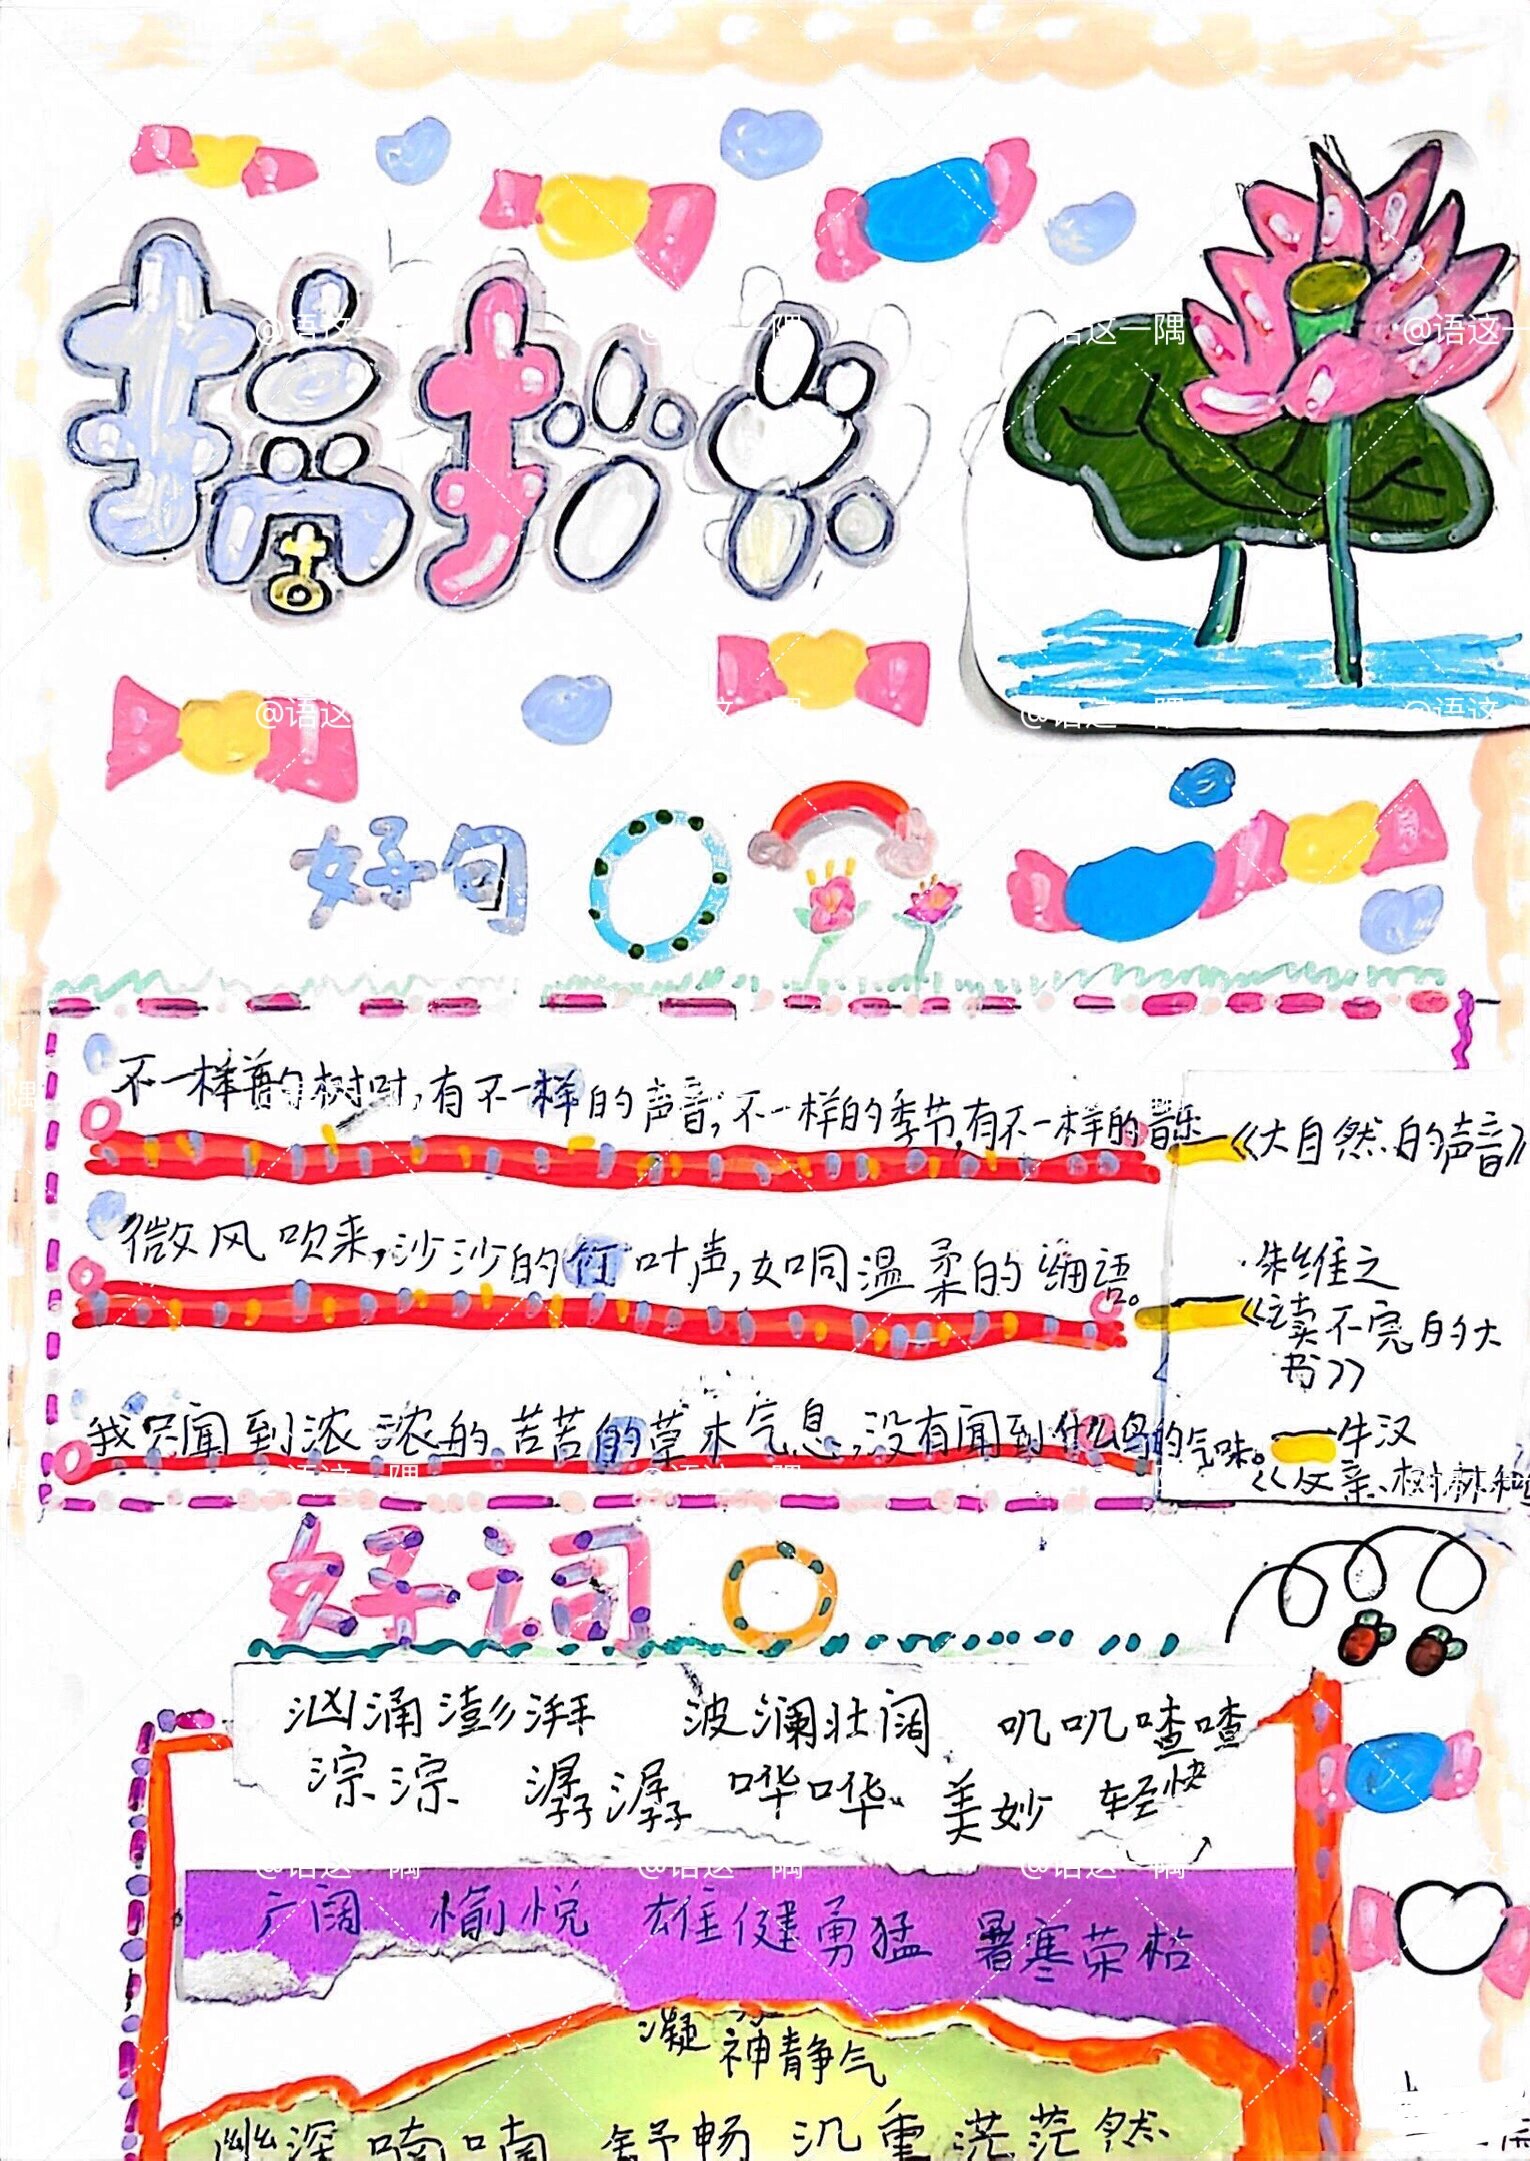 摘抄
好句
不一样的树叶,有不一样的声音,不一样的季节,有不一样的音乐——《大自然的声音》
微风吹来,沙沙的竹叶声,如同温柔的细语。
——朱维之
《读不完的大书》
我只闻到浓浓的苦苦的草木气息,没有闻到什么鸟的气味。——牛汉
《父亲、树林和
好词
汹涌澎湃 波澜壮阔 叽叽喳喳
淙淙 潺潺 哗哗 美妙 轻快
广阔 愉悦 雄健勇猛 暑寒荣枯
凝神静气
幽深 喃喃 舒畅 沉重 茫茫然
@语这一隅